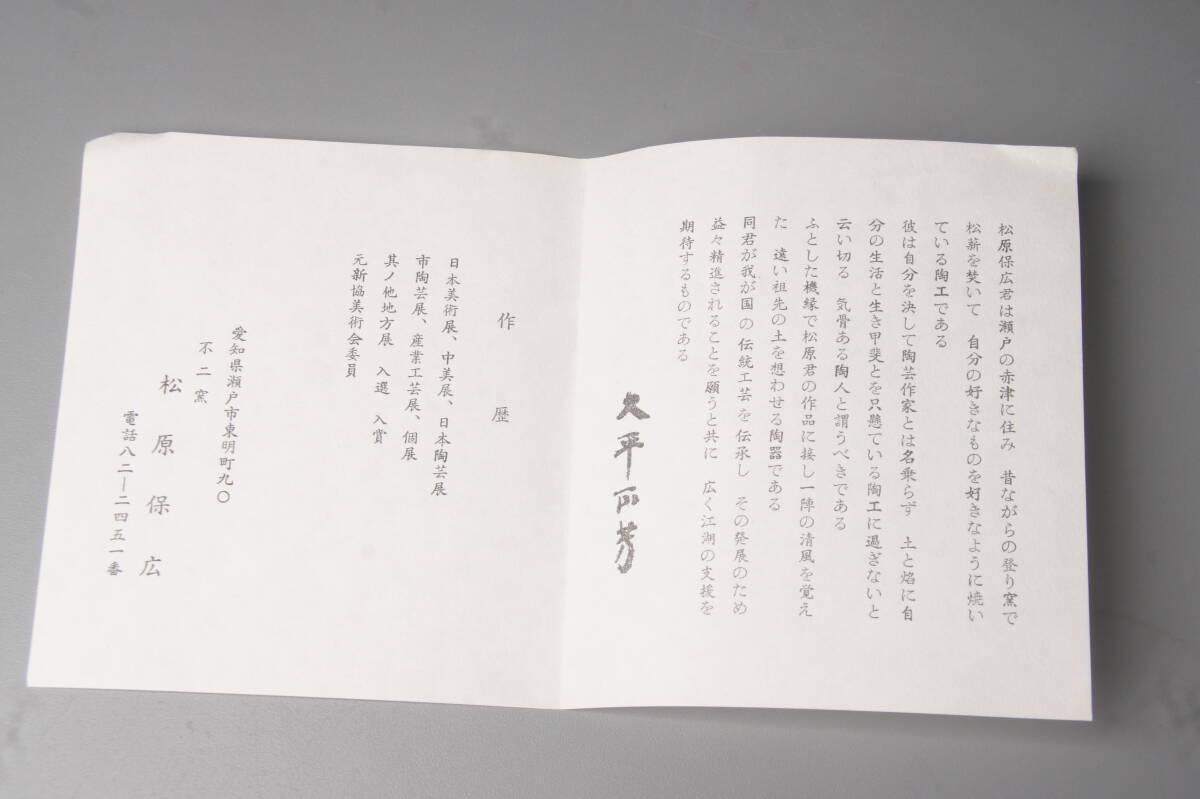 松原保広君は瀬戸の赤津に住み　昔ながらの登り窯で
松薪を焚いて　自分の好きなものを好きなように焼い
ている陶工である
彼は自分を決して陶芸作家とは名乗らず　土と焰に自
分の生活と生き甲斐とを只懸ている陶工に過ぎないと
云い切る　気骨ある陶人と謂うべきである
ふとした機縁で松原君の作品に接し一陣の清風を覚え
た　遠い祖先の土を想わせる陶器である
同君が我が国の伝統工芸を伝承し　その発展のため
益々精進されることを願うと共に　広く江湖の支援を
期待するものである
大平正芳
作歴
日本美術展、中美展、日本陶芸展
市陶芸展、産業工芸展、個展
其ノ他地方展　入選　入賞
元新協美術会委員
愛知県瀬戸市東明町九〇
不二窯
松原保広
電話八二―二四五一番